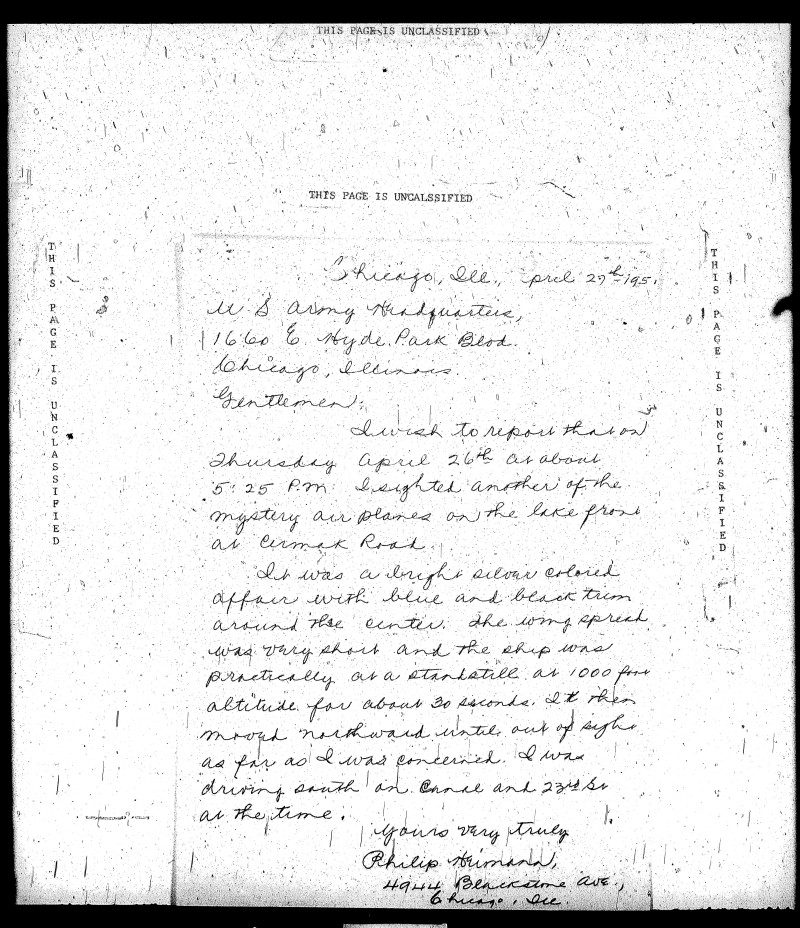 THIS PAGE IS UNCLASSIFIED
THIS PAGE IS UNCALSSIFIED
THIS PAGE IS UNCLASSIFIED
THIS PAGE IS UNCLASSIFIED
Chicago, Ill., pril 27th 195
U S Army Headquarters,
1660 E. Hyde Park Blvd.
Chicago, Illinois.
Gentlemen:
I wish to report that on
Thursday April 26th at about
5:25 P.M. I sighted another of the
mystery air planes on the lake front
at Cermak Road.
It was a bright silver colored
affair with blue and black trim
around the center. The wing spread
was very short and the ship was
practically at a standstill at 1000 foot
altitude for about 30 seconds. It then
moved northward until out of sight
as far as I was concerned. I was
driving south on Canal and 23rd St
at the time.
Yours very truly
Philip Heimann,
4944 Blackstone Ave.,
Chicago, Ill.